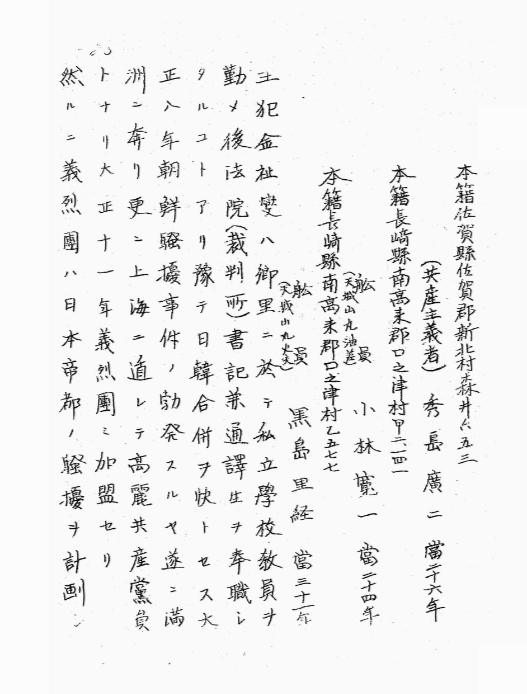 本籍佐賀縣佐賀郡新北村森井六五三
(共産主義者) 秀島廣二 當二十六年
本籍長崎縣南高来郡口之津村甲二一四一
舩員(天城山丸油差) 小林寛一 當二十四年
本籍長崎縣南高来郡口之津村乙五七七
舩員(天城山丸火夫) 黒島里経 當三十一年
主犯金祉燮ハ郷里ニ於テ私立學校教員ヲ
勤メ後法院(裁判所)書記兼通譯生ヲ奉職シ
タルコトアリ豫テ日韓合併ヲ快トセス大
正八年朝鮮騒擾事件ノ勃発スルヤ遂ニ満
洲ニ奔リ更ニ上海ニ遁レテ高麗共産黨員
トナリ大正十一年義烈團ニ加盟セリ
然ルニ義烈團ハ日本帝都ノ騒擾ヲ計画シ